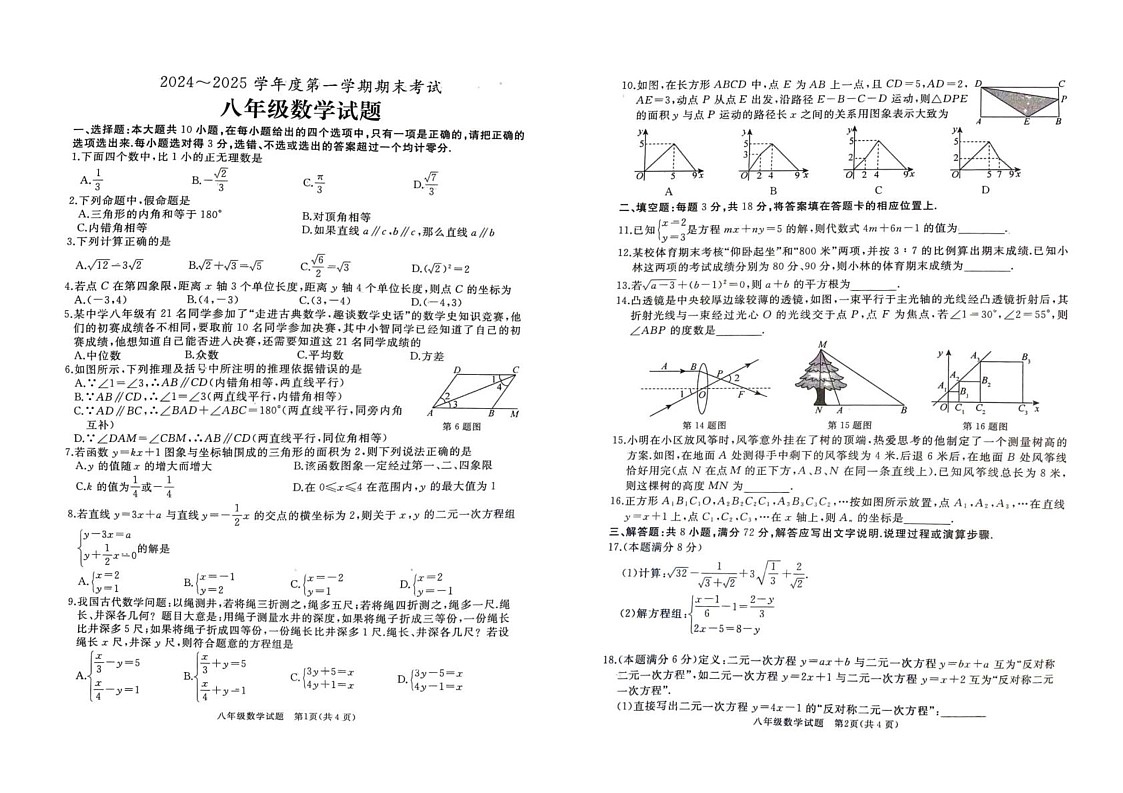 2024～2025 学年度第一学期期末考试
八年级数学试题
一、选择题:本大题共 10 小题,在每小题给出的四个选项中,只有一项是正确的,请把正确的
选项选出来.每小题选对得 3 分,选错、不选或选出的答案超过一个均计零分.
1.下面四个数中,比 1 小的正无理数是
A.1/3 B.-√2/3 C.π/3 D.√7/3
2.下列命题中,假命题是
A.三角形的内角和等于 180° B.对顶角相等
C.内错角相等 D.如果直线 a∥c,b∥c,那么直线 a∥b
3.下列计算正确的是
A.√12=3√2 B.√2+√3=√5 C.√6/2=√3 D.(√2)²=2
4.若点 C 在第四象限,距离 x 轴 3 个单位长度,距离 y 轴 4 个单位长度,则点 C 的坐标为
A.(-3,4) B.(4,-3) C.(3,-4) D.(-4,3)
5.某中学八年级有 21 名同学参加了“走进古典数学,趣谈数学史话”的数学史知识竞赛,他
们的初赛成绩各不相同,要取前 10 名同学参加决赛,其中小智同学已经知道了自己的初
赛成绩,他想知道自己能否进入决赛,还需要知道这 21 名同学成绩的
A.中位数 B.众数 C.平均数 D.方差
6.如图所示,下列推理及括号中所注明的推理依据错误的是
A.∵∠1=∠3,∴AB∥CD(内错角相等,两直线平行)
B.∵AB∥CD,∴∠1=∠3(两直线平行,内错角相等)
C.∵AD∥BC,∴∠BAD+∠ABC=180°(两直线平行,同旁内角
互补)
D.∵∠DAM=∠CBM,∴AB∥CD(两直线平行,同位角相等)
D C 1 4 2 3 A B M
第 6 题图
7.若函数 y=kx+1 图象与坐标轴围成的三角形的面积为 2,则下列说法正确的是
A.y 的值随 x 的增大而增大 B.该函数图象一定经过第一、二、四象限
C.k 的值为1/4或-1/4 D.在 0≤x≤4 在范围内,y 的最大值为 1
8.若直线 y=3x+a 与直线 y=-1/2x 的交点的横坐标为 2,则关于 x,y 的二元一次方程组
{y-3x=a
y+1/2x=0 的解是
A.{x=2 y=1 B.{x=-1 y=2 C.{x=-2 y=1 D.{x=2 y=-1
9.我国古代数学问题:以绳测井,若将绳三折测之,绳多五尺;若将绳四折测之,绳多一尺.绳
长、井深各几何？题目大意是:用绳子测量水井的深度,如果将绳子折成三等份,一份绳长
比井深多 5 尺;如果将绳子折成四等份,一份绳长比井深多 1 尺.绳长、井深各几尺？若设
绳长 x 尺,井深 y 尺,则符合题意的方程组是
A.{x/3-y=5 x/4-y=1 B.{x/3+y=5 x/4+y=1 C.{3y+5=x 4y+1=x D.{3y-5=x 4y-1=x
八年级数学试题 第1页(共 4 页)
10.如图,在长方形 ABCD 中,点 E 为 AB 上一点,且 CD=5,AD=2,
AE=3,动点 P 从点 E 出发,沿路径 E-B-C-D 运动,则△DPE
的面积 y 与点 P 运动的路径长 x 之间的关系用图象表示大致为
D C P A E B
y 5 O 5 9 x
y 5 3 O 2 4 9 x
y 5 2 O 2 4 9 x
y 5 2 O 5 7 9 x
A B C D
二、填空题:每题 3 分,共 18 分,将答案填在答题卡的相应位置上.
11.已知{x=2 y=3是方程 mx+ny=5 的解,则代数式 4m+6n-1 的值为______.
12.某校体育期末考核“仰卧起坐”和“800 米”两项,并按 3∶7 的比例算出期末成绩.已知小
林这两项的考试成绩分别为 80 分、90 分,则小林的体育期末成绩为______.
13.若√a-3+(b-1)²=0,则 a+b 的平方根为______.
14.凸透镜是中央较厚边缘较薄的透镜,如图,一束平行于主光轴的光线经凸透镜折射后,其
折射光线与一束经过光心 O 的光线交于点 P,点 F 为焦点,若∠1=30°,∠2=55°,则
∠ABP 的度数是______.
A B P 2 1 O F
M N A B
y A₃ B₃ A₂ B₂ A₁ B₁ O C₁ C₂ C₃ x
第 14 题图 第 15 题图 第 16 题图
15.小明在小区放风筝时,风筝意外挂在了树的顶端,热爱思考的他制定了一个测量树高的
方案.如图,在地面 A 处测得手中剩下的风筝线为 4 米.后退 6 米后,在地面 B 处风筝线
恰好用完(点 N 在点 M 的正下方,A、B、N 在同一条直线上).已知风筝线总长为 8 米,
则这棵树的高度 MN 为______.
16.正方形 A₁B₁C₁O,A₂B₂C₂C₁,A₃B₃C₃C₂,…按如图所示放置,点 A₁,A₂,A₃,…在直线
y=x+1 上,点 C₁,C₂,C₃,…在 x 轴上,则 Aₙ 的坐标是______.
三、解答题:共 8 小题,满分 72 分,解答应写出文字说明.说理过程或演算步骤.
17.(本题满分 8 分)
(1)计算:√32-1/(√3+√2)+3√(1/3)+2/√2.
(2)解方程组:{(x-1)/6-1=(2-y)/3
2x-5=8-y
18.(本题满分 6 分)定义:二元一次方程 y=ax+b 与二元一次方程 y=bx+a 互为“反对称
二元一次方程”,如二元一次方程 y=2x+1 与二元一次方程 y=x+2 互为“反对称二元
一次方程”.
(1)直接写出二元一次方程 y=4x-1 的“反对称二元一次方程”:______
八年级数学试题 第2页(共 4 页)